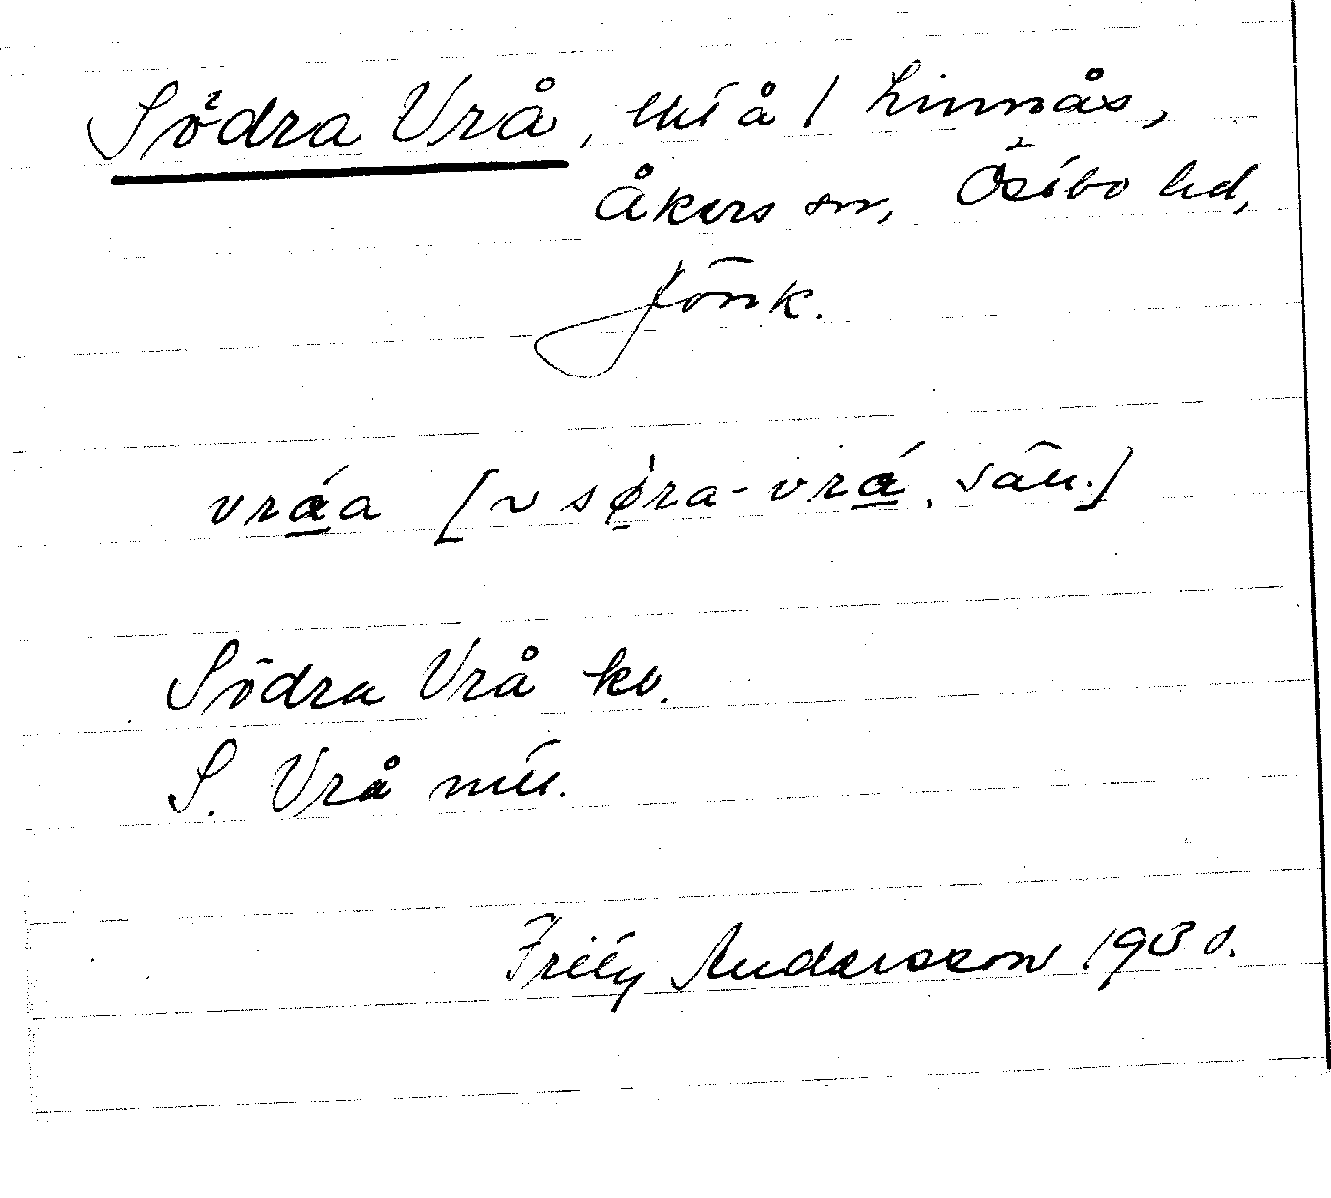 Södra Vrå, tht å / Linnås,
Åkers sn, Östbo hd,
Jönk.
vráa [~ søra-vrá, sän.]
Södra Vrå kv.
S. Vrå mtl.
Andersson 1930.